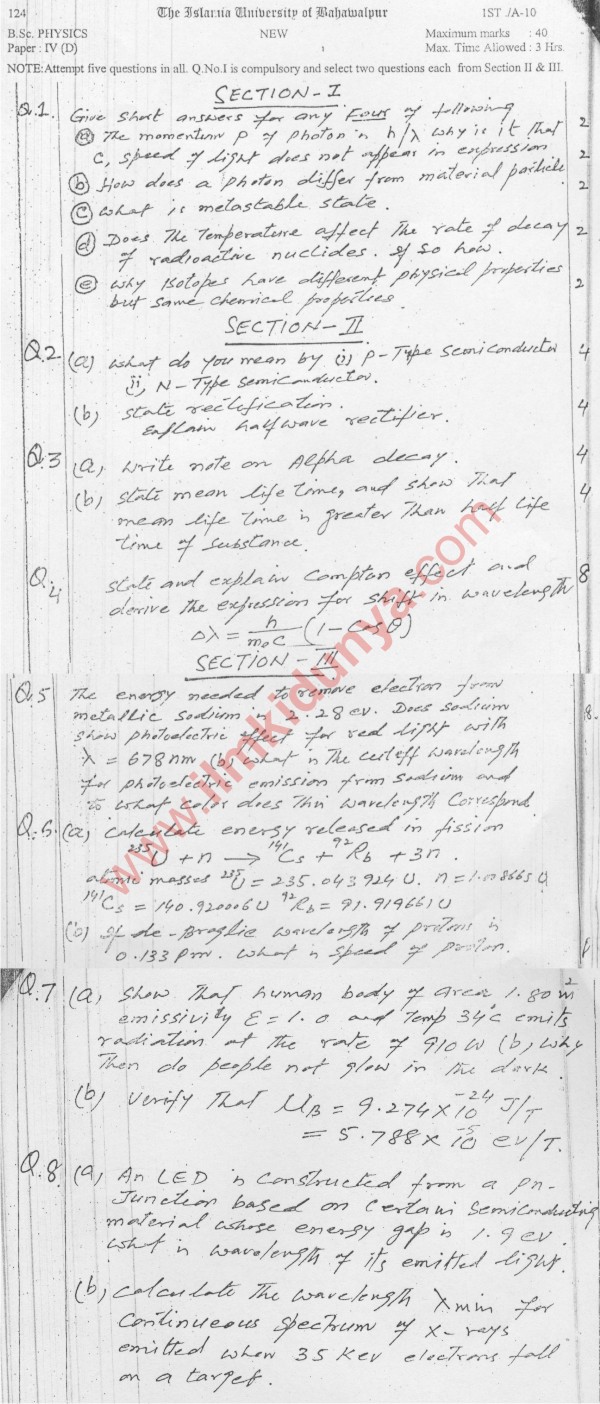 124 The Islamia University of Bahawalpur 1ST /A-10
B.Sc. PHYSICS NEW Maximum marks : 40
Paper : IV (D) Max. Time Allowed : 3 Hrs.
NOTE: Attempt five questions in all. Q.No.I is compulsory and select two questions each from Section II & III.
SECTION-I
Q.1. Give short answers for any Four of following
(a) The momentum P of Photon is h/λ why is it that 2
C, speed of light does not appear in expression 2
(b) How does a Photon differ from material particle 2
(c) what is metastable state.
(d) Does The Temperature affect The rate of decay 2
of radioactive nuclides. If so how.
(e) why Isotopes have different physical properties 2
but same chemical properties
SECTION-II
Q.2 (a) what do you mean by (i) P-Type semiconductor 4
ii, N-Type semiconductor.
(b) state rectification. 4
Explain half wave rectifier.
Q.3 (a, write note on Alpha decay. 4
(b, state mean life time, and show That 4
mean life time is greater Than half life
time of substance.
Q.4 state and explain Compton effect and 8
derive the expression for shift in wavelength
Δλ = h/m₀c (1-Cosθ)
SECTION-III
Q.5 The energy needed to remove electron from 8.
metallic sodium is 2.28 ev. Does sodium
show photoelectric effect for red light with
λ = 678 nm (b) what is The cutoff wavelength
for photoelectric emission from sodium and
to what color does this wavelength Correspond.
Q.6. (a) Calculate energy released in fission
²³⁵U + n → ¹⁴¹Cs + ⁹²Rb + 3n.
atomic masses ²³⁵U = 235.043924 U. n = 1.008665 U
¹⁴¹Cs = 140.920006 U ⁹²Rb = 91.919661 U
(b) If de-Broglie wavelength of protons is
0.133 Pm. what is speed of proton.
Q.7 (a, Show That human body of area 1.80 m²
emissivity ε = 1.0 and Temp 34°c emits
radiation at the rate of 910 W (b, why
Then do people not glow in the dark.
(b, Verify That μB = 9.274 × 10⁻²⁴ J/T
= 5.788 × 10⁻⁵ ev/T.
Q.8. (a, An LED is constructed from a pn-
Junction based on certain Semiconducting
material whose energy gap is 1.9 ev.
what is wavelength of its emitted light.
(b, calculate The wavelength λmin for
Continueous spectrum of x-rays
emitted when 35 Kev electrons fall
on a target.
www.ilmkidunya.com